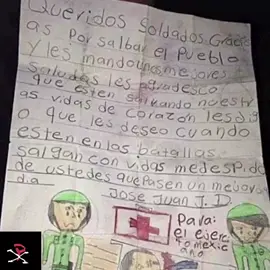 Queridos Soldados Graci
as por salbar el Pueblo
y les mando unos mejores
Saludas les agradesco
que esten salvando nuestr
as vidas de corazon les di
o que les deseo cuando
esten en las batallas
salgan con vidas me despido
de ustedes que Pasen un mejor
dia
Jose Juan J. D.
Para:
el ejerci
to mexic
ano